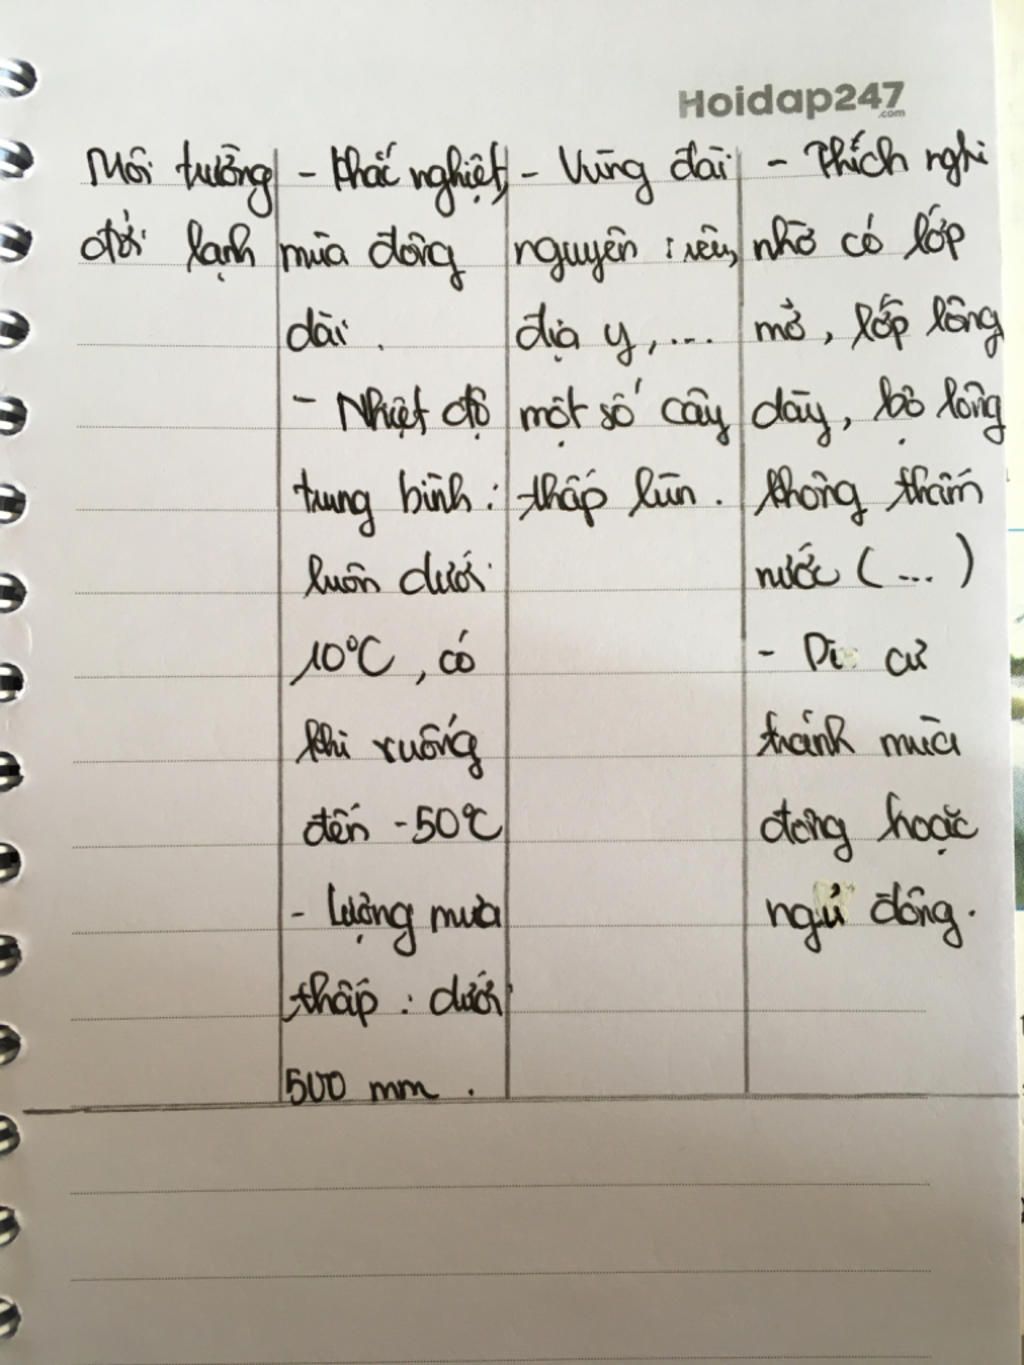 Hoidap247
.com
Môi trường
đới lạnh
- Khắc nghiệt,
mùa đông
dài.
- Nhiệt độ
trung bình:
luôn dưới
10°C, có
khi xuống
đến -50°C
- Lượng mưa
thấp: dưới
500 mm.
- Vùng đài
nguyên: rêu,
địa y,...
một số cây
thấp lùn.
- Thích nghi
nhờ có lớp
mỡ, lớp lông
dày, bộ lông
không thấm
nước (...)
- Di cư
tránh mùa
đông hoặc
ngủ đông.